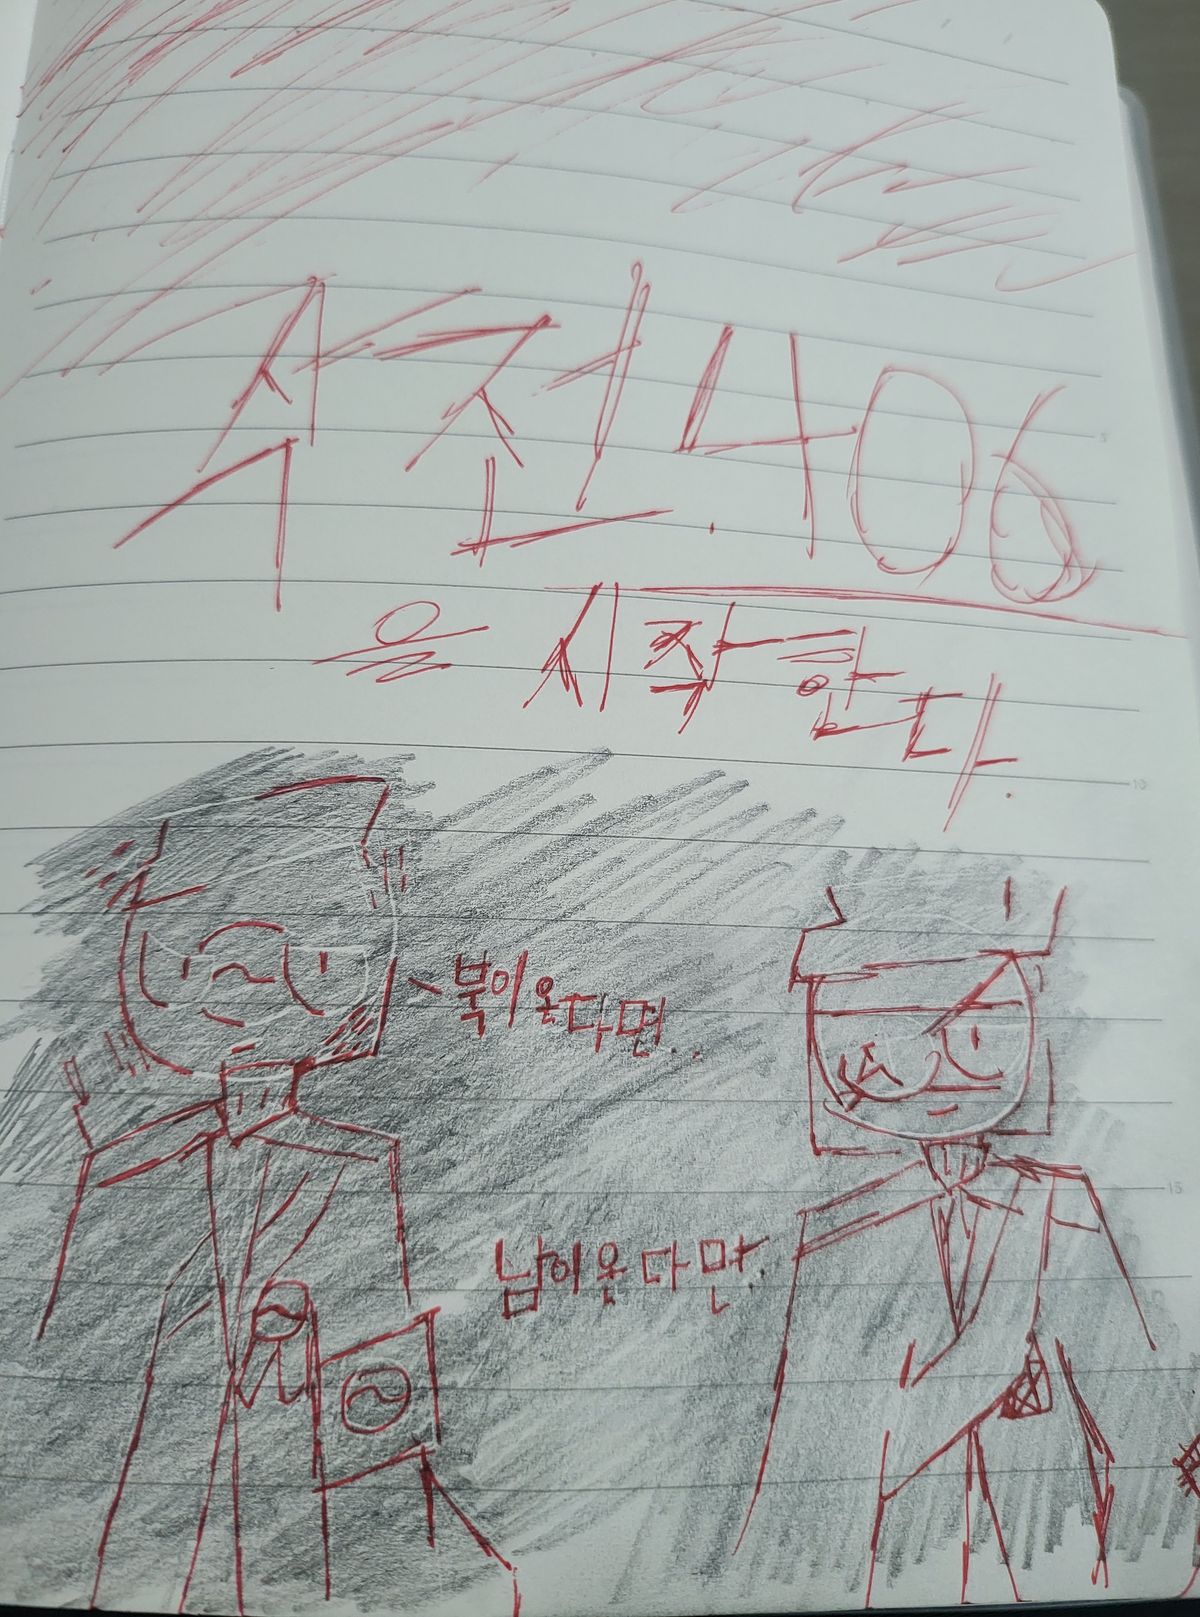 작전.406
을 시작한다.
북이 온다면..
남이 온다면..